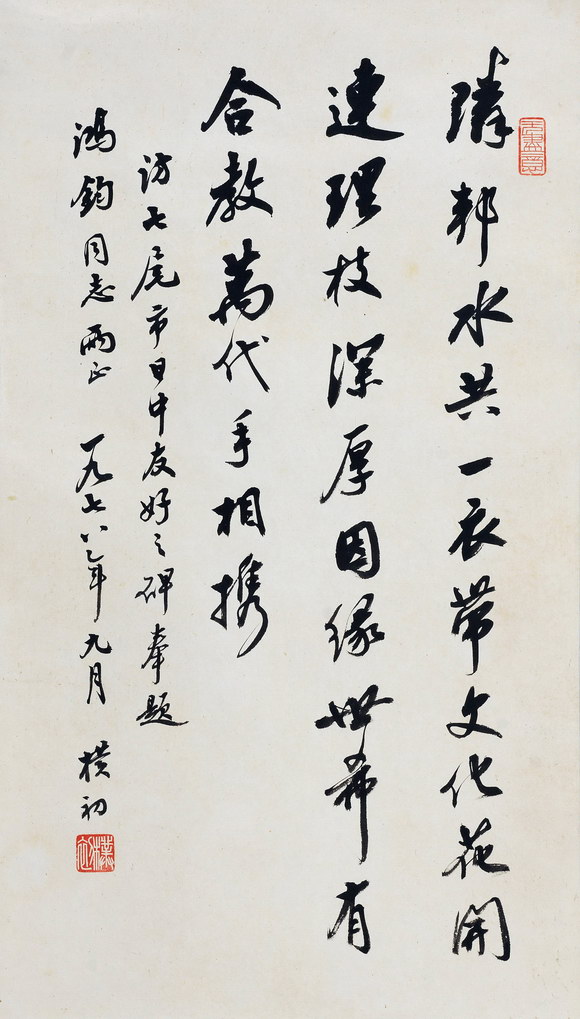 隣邦水共一衣帶文化花開
連理枝深厚因緣世希有
合教萬代手相携
訪七尾市日中友好之碑奉題
鴻鈞同志兩正 一九七八年九月 樸初
樸初